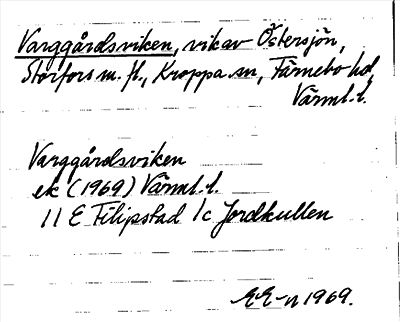 Varggårdsviken, vik av Östersjön,
Storfors m. fl., Kroppa sn, Färnebo hd,
Värml. l.
Varggårdsviken
ek (1969) Värml. l.
11 E Filipstad 1c Jordkullen
EE-n 1969.